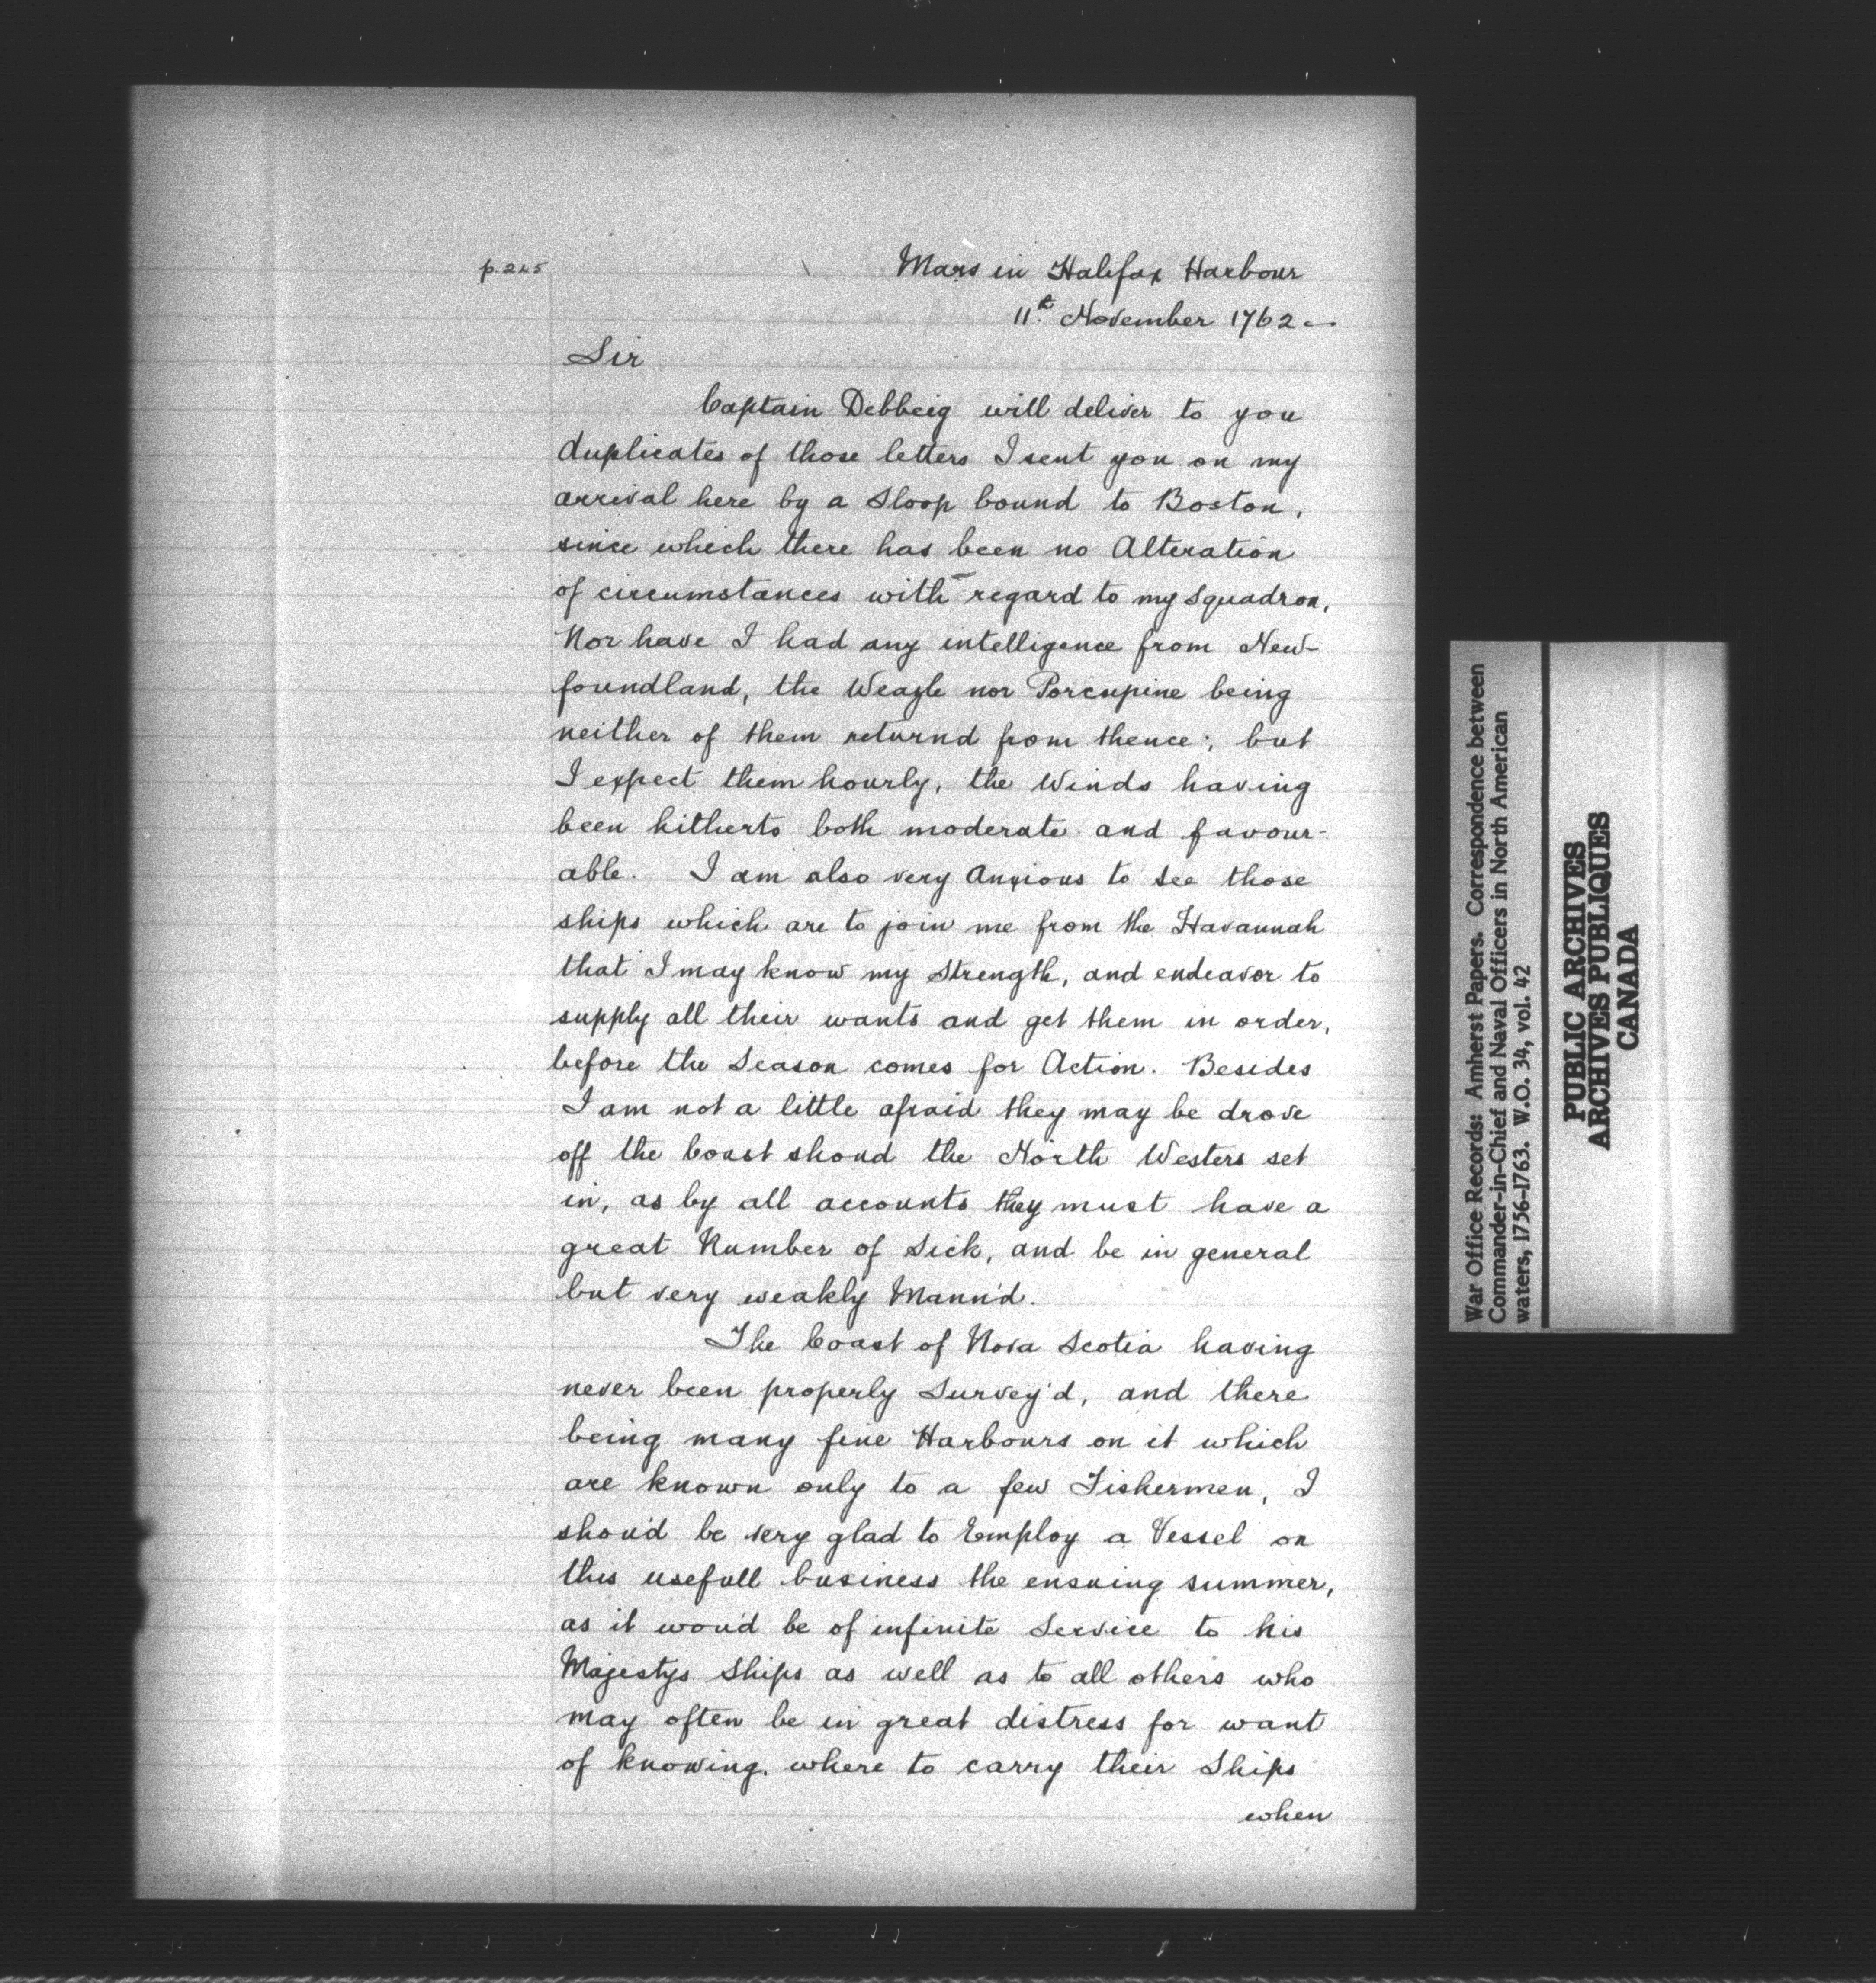 p. 245
Mars in Halifax Harbour
11th November 1762.
Sir
Captain Debbeig will deliver to you
duplicates of those letters I sent you on my
arrival here by a Sloop bound to Boston,
since which there has been no Alteration
of circumstances with regard to my squadron,
Nor have I had any intelligence from New-
foundland, the Weazle nor Porcupine being
neither of them returnd from thence; but
I expect them hourly, the Winds having
been hitherto both moderate and favour-
able. I am also very Anxious to see those
ships which are to join me from the Havannah
that I may know my Strength, and endeavor to
supply all their wants and get them in order,
before the Season comes for Action. Besides
I am not a little afraid they may be drove
off the Coast shoud the North Westers set
in, as by all accounts they must have a
great Number of Sick, and be in general
but very weakly Mann'd.
The Coast of Nova Scotia having
never been properly Survey'd, and there
being many fine Harbours on it which
are known only to a few Fishermen, I
shou'd be very glad to Employ a Vessel on
this usefull business the ensuing summer,
as it wou'd be of infinite Service to his
Majestys Ships as well as to all others who
may often be in great distress for want
of knowing where to carry their Ships
when
War Office Records: Amherst Papers. Correspondence between
Commander-in-Chief and Naval Officers in North American
waters, 1756-1763. W.O. 34, vol. 42
PUBLIC ARCHIVES
ARCHIVES PUBLIQUES
CANADA